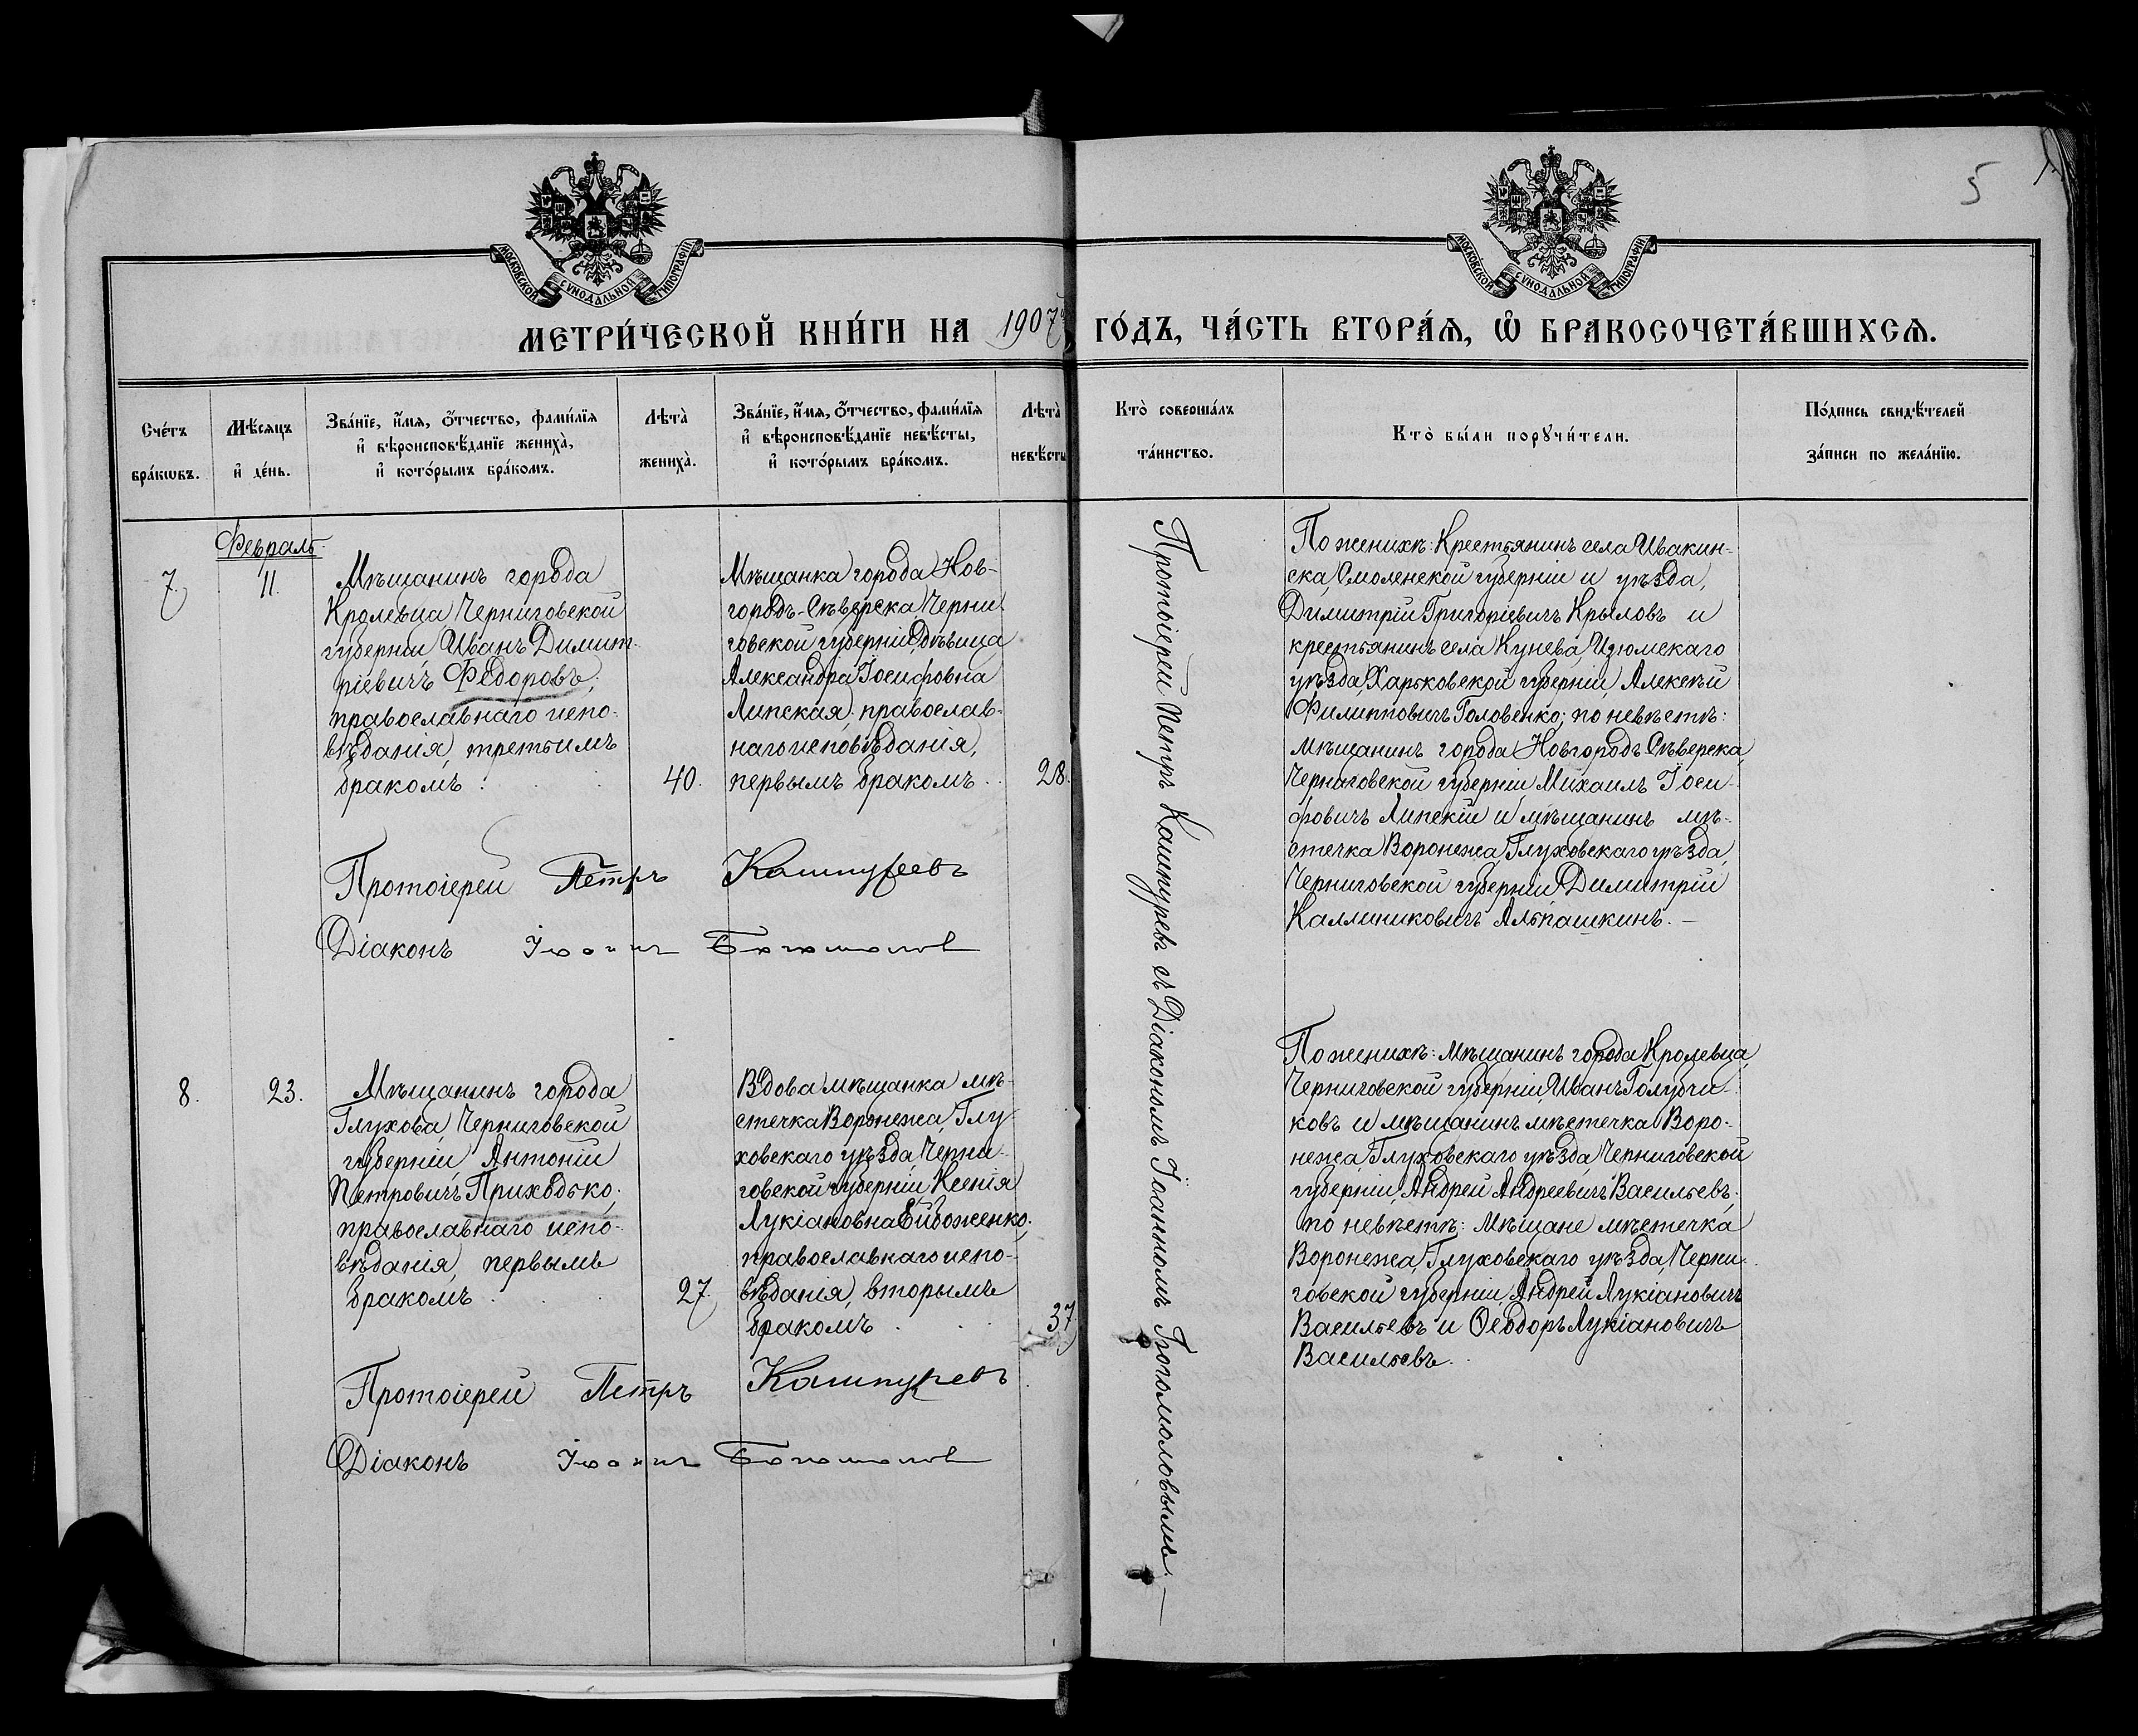 5
МОСКОВСКОЙ СѴНОДАЛЬНОЙ ТИПОГРАФІИ
МОСКОВСКОЙ СѴНОДАЛЬНОЙ ТИПОГРАФІИ
МЕТРИ́ЧЕСКОЙ КНИ́ГИ НА 1907й ГО́ДЪ, ЧА́СТЬ ВТОРА́Я, Ѡ҆ БРАКОСОЧЕТА́ВШИХСЯ.
Сче́тъ
бра́кѡвъ.
Мѣ́сяцъ
и҆ де́нь.
Зва́нїе, и҆́мя, о҆́тчество, фами́лїя
и҆ вѣроисповѣ́данїе жениха̀,
и҆ кото́рымъ бра́комъ.
Лѣта̀
жениха̀.
Зва́нїе, и҆́мя, о҆́тчество, фами́лїя
и҆ вѣроисповѣ́данїе невѣ́сты,
и҆ кото́рымъ бра́комъ.
Лѣта̀
невѣ́сты
Кто̀ соверша́лъ
та́инство.
Кто̀ бы́ли порꙋчи́тели.
По́дпись свидѣ́телей
за́писи по жела́нїю.
Февраль.
7.
11.
Мѣщанинъ города
Кролевца, Черниговской
губерніи Иванъ Димит-
ріевичъ Федоровъ;
православнаго испо-
вѣданія, третьимъ
бракомъ.
40.
Мѣщанка города Нов-
городъ-Сѣверска Черни-
говской губерніи, дѣвица
Александра Іосифовна
Липская; православ-
наго исповѣданія,
первымъ бракомъ.
28.
Протоіерей Петръ Кашпуревъ
Діаконъ Іоаннъ Богомолов
Протоіерей Петръ Кашпуревъ съ Діакономъ Іоанномъ Богомоловымъ.—
По женихѣ: Крестьянинъ села Ивакин-
ска, Смоленской губерніи и уѣзда,
Димитрій Григоріевичъ Крыловъ и
крестьянинъ села Кунева, Изюмскаго
уѣзда, Харьковской губерніи Алексѣй
Филипповичъ Головенко; по невѣстѣ:
мѣщанинъ города Новгородъ Сѣверска,
Черниговской губерніи Михаилъ Іоси-
фовичъ Липскій и мѣщанинъ мѣ-
стечка Воронежа, Глуховскаго уѣзда,
Черниговской губерніи, Димитрій
Каллиниковичъ Альпашкинъ.—
8.
23.
Мѣщанинъ города
Глухова, Черниговской
губерніи, Антоній
Петровичъ Приходько;
православнаго испо-
вѣданія, первымъ
бракомъ.
27.
Вдова мѣщанка мѣ-
стечка Воронежа, Глу-
ховскаго уѣзда, Черни-
говской губерніи Ксенія
Лукіановна
православнаго испо-
вѣданія, вторымъ
бракомъ.
37
Протоіерей Петръ Кашпуревъ
Діаконъ Іоаннъ Богомолов
По женихѣ: мѣщанинъ города Кролевца,
Черниговской губерніи, Иванъ Голубчи-
ковъ и мѣщанинъ мѣстечка Воро-
нежа, Глуховскаго уѣзда, Черниговской
губерніи, Андрей Андреевичъ Васильевъ;
по невѣстѣ: Мѣщане мѣстечка
Воронежа, Глуховскаго уѣзда, Черни-
говской губерніи, Андрей Лукіановичъ
Васильевъ и Ѳеодоръ Лукіановичъ
Васильевъ.